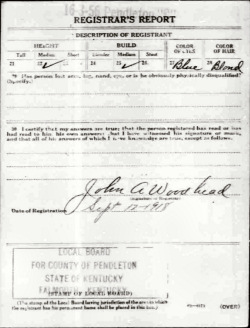 REGISTRAR'S REPORT
DESCRIPTION OF REGISTRANT
HEIGHT BUILD COLOR OF EYES COLOR OF HAIR
Tall Medium Short Slender Medium Stout
21 22 23 24 25 26 27 Blue 28 Blond
29 Has person lost arm, leg, hand, eye, or is he obviously physically disqualified?
(Specify.)
30 I certify that my answers are true; that the person registered has read or has
had read to him his own answers; that I have witnessed his signature or mark,
and that all of his answers of which I have knowledge are true, except as follows:
John A Woodhead
(Signature of Registrar)
Date of Registration Sept 12-1918
LOCAL BOARD
FOR COUNTY OF PENDLETON
STATE OF KENTUCKY
FALMOUTH, KENTUCKY
(STAMP OF LOCAL BOARD)
(The stamp of the Local Board having jurisdiction of the area in which
the registrant has his permanent home shall be placed in this box.)
(OVER)